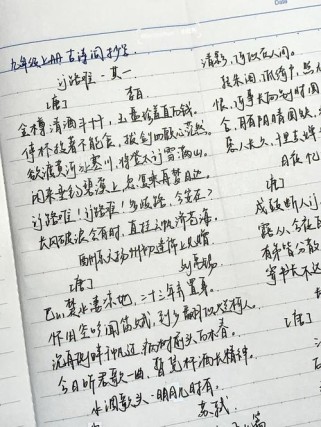 Date
九年级上册古诗词抄写
行路难·其一
[唐] 李白
金樽清酒斗十千，玉盘珍羞直万钱。
停杯投箸不能食，拔剑四顾心茫然。
欲渡黄河冰塞川，将登太行雪满山。
闲来垂钓碧溪上，忽复乘舟梦日边。
行路难！行路难！多歧路，今安在？
长风破浪会有时，直挂云帆济沧海。
酬乐天扬州初逢席上见赠
[唐] 刘禹锡
巴山楚水凄凉地，二十三年弃置身。
怀旧空吟闻笛赋，到乡翻似烂柯人。
沉舟侧畔千帆过，病树前头万木春。
今日听君歌一曲，暂凭杯酒长精神。
水调歌头·明月几时有
苏轼
清影，何似在人间。
转朱阁，低绮户，
恨，何事长向别时圆
合，月有阴晴圆缺，
愿人长久，千里共
月夜忆
[唐]
戍鼓断人行，
露从今夜
有弟皆分散
寄书长不达
[唐]